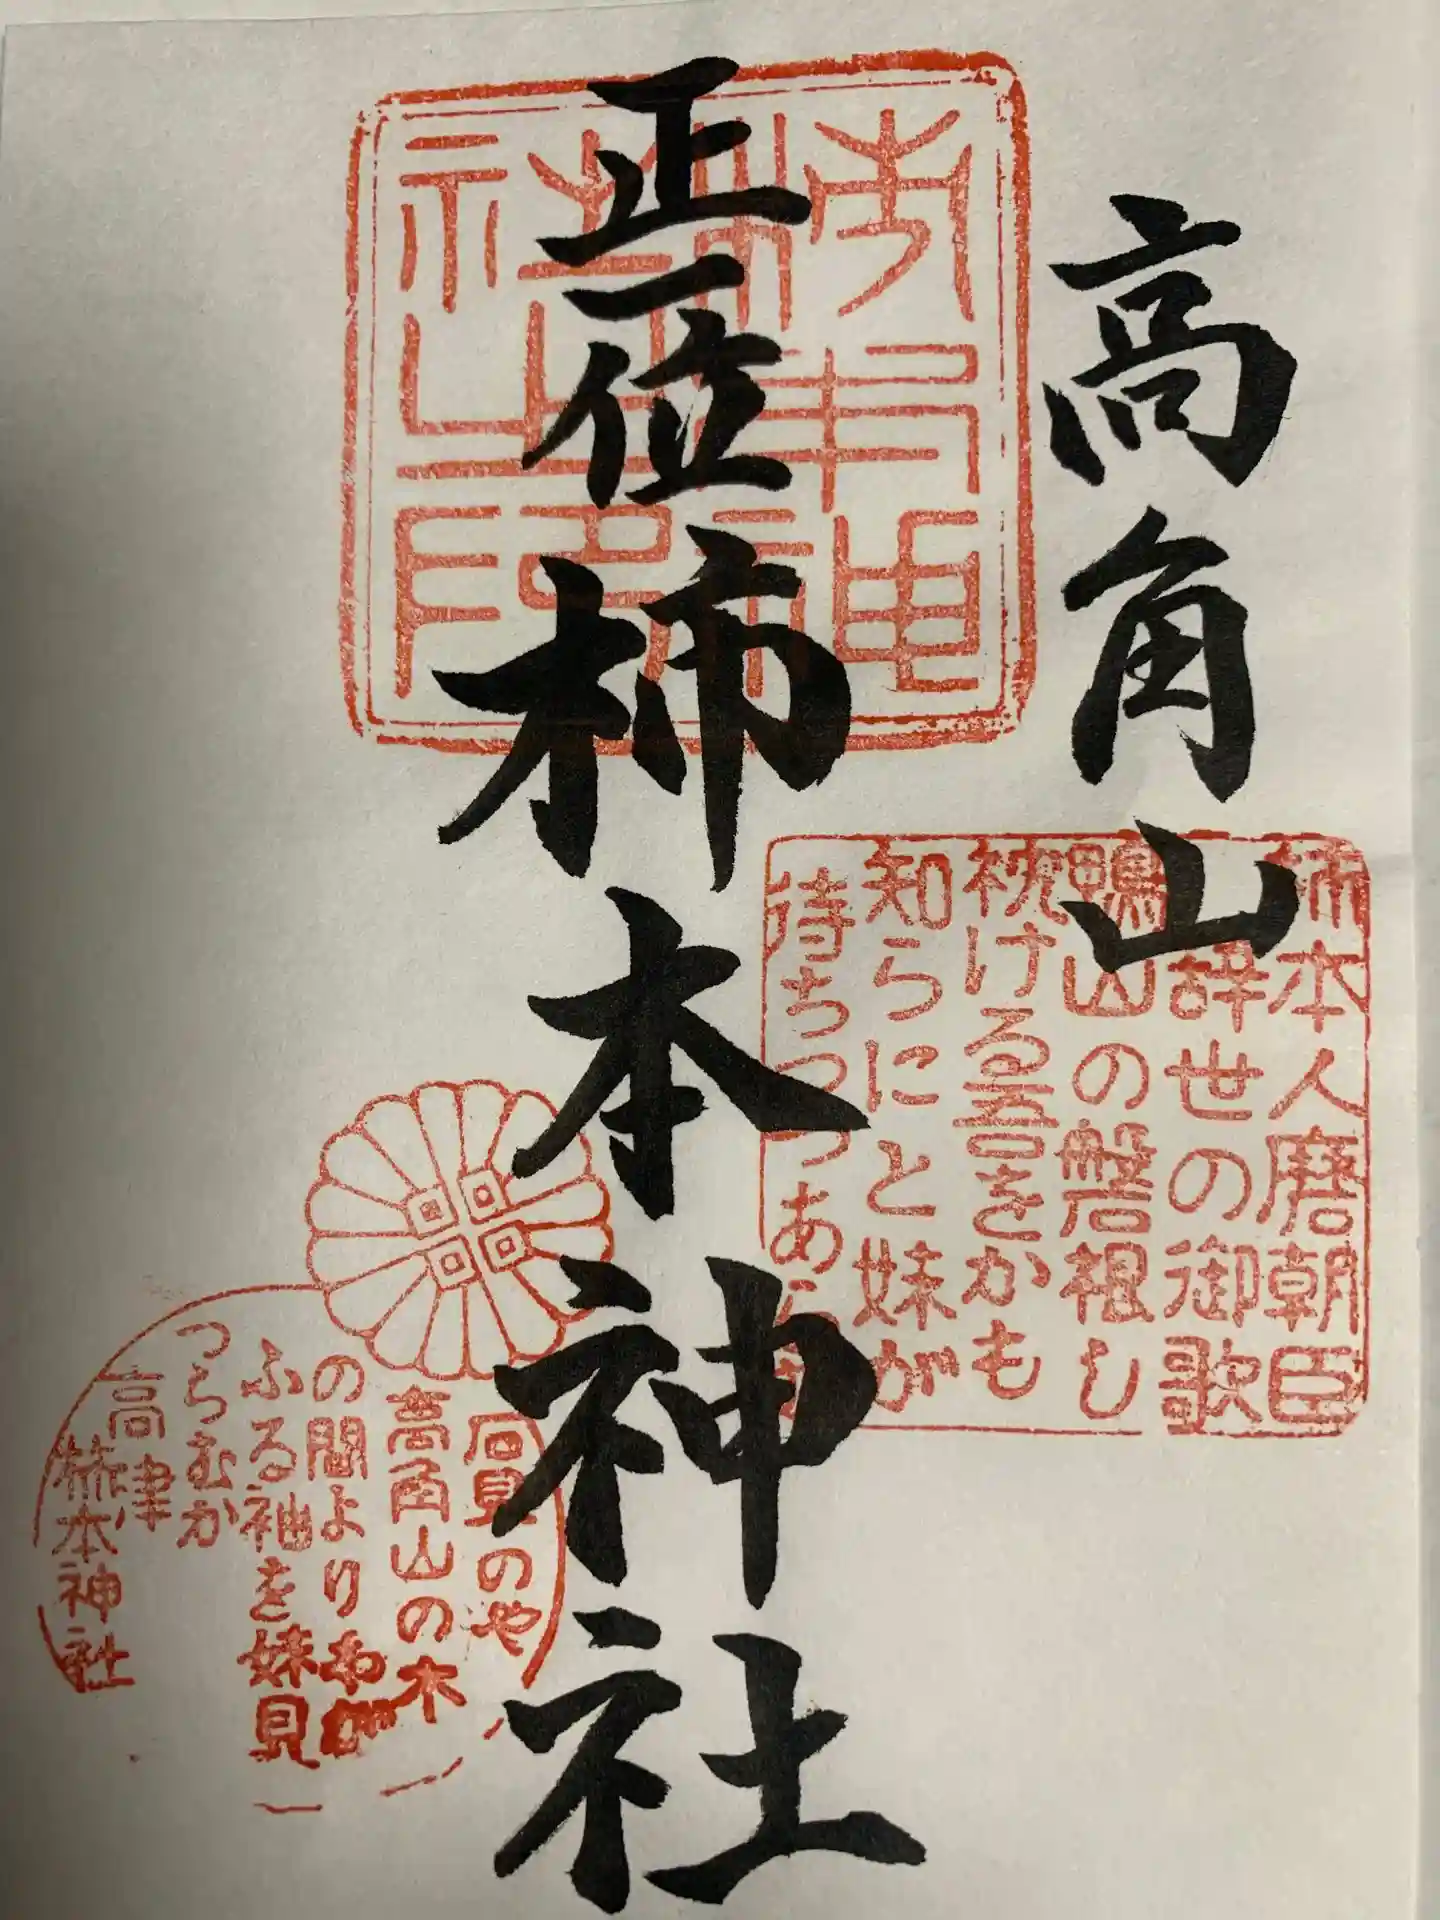 高角山
正一位柿本神社
柿本人磨朝臣
辞世の御歌
鴨山の磐根し
枕ける吾をかも
知らにと妹が
待ちつつあ
石見のや
高角山の木
の間よりわが
ふる袖を妹見
つらむか
高津
柿本神社